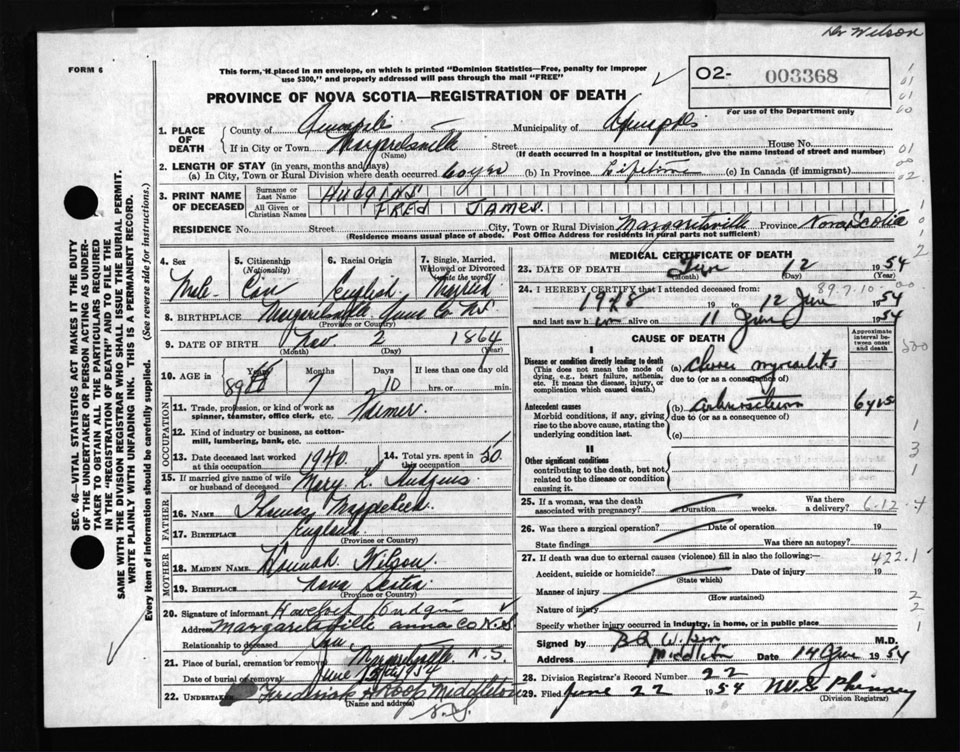 Dr Wilson
FORM 6
This form, if placed in an envelope, on which is printed "Dominion Statistics—Free, penalty for improper
use $300," and properly addressed will pass through the mail "FREE"
O2- 003368
For use of the Department only
PROVINCE OF NOVA SCOTIA—REGISTRATION OF DEATH
1. PLACE OF DEATH
County of Annapolis Municipality of Annapolis
If in City or Town Margaretsville Street House No.
(Name) (If death occurred in a hospital or institution, give the name instead of street and number)
2. LENGTH OF STAY (in years, months and days)
(a) In City, Town or Rural Division where death occurred 60 yrs (b) In Province Lifetime (c) In Canada (if immigrant)
3. PRINT NAME OF DECEASED
Surname or Last Name HUDGINS
All Given or Christian Names FRED JAMES
RESIDENCE No. Street City, Town or Rural Division Margaretsville Province Nova Scotia
(Residence means usual place of abode. Post Office Address for residents in rural parts not sufficient)
4. Sex Male
5. Citizenship (Nationality) Can
6. Racial Origin English
7. Single, Married, Widowed or Divorced (write the word) Married
8. BIRTHPLACE Margaretsville Anna Co NS
(Province or Country)
9. DATE OF BIRTH Nov 2 1864
(Month) (Day) (Year)
10. AGE Years 89 Months 7 Days 10 If less than one day old
hrs. or min.
OCCUPATION
11. Trade, profession, or kind of work as spinner, teamster, office clerk, etc. Farmer
12. Kind of industry or business, as cotton-mill, lumbering, bank, etc.
13. Date deceased last worked at this occupation 1940 14. Total yrs. spent in this occupation 50
15. If married give name of wife or husband of deceased Mary L. Hudgins
FATHER
16. NAME
17. BIRTHPLACE England
(Province or Country)
MOTHER
18. MAIDEN NAME Hannah Wilson
19. BIRTHPLACE Nova Scotia
(Province or Country)
20. Signature of informant Havelock Hudgin
Address Margaretsville Anna Co N.S.
Relationship to deceased Son
21. Place of burial, cremation or removal Margaretsville N.S.
Date of burial or removal June 1954
22. Undertaker Frederick Roop Middleton
(Name and address)
N.S.
MEDICAL CERTIFICATE OF DEATH
23. DATE OF DEATH Jun 12 1954
(Month) (Day) (Year)
24. I HEREBY CERTIFY that I attended deceased from: 89.7.10
1948 19 to 12 June 1954
and last saw him alive on 11 June 1954
CAUSE OF DEATH
Approximate interval between onset and death
I
Disease or condition directly leading to death
(This does not mean the mode of dying, e.g., heart failure, asthenia, etc. It means the disease, injury, or complication which caused death.)
(a) myocarditis
due to (or as a consequence of)
Antecedent causes
Morbid conditions, if any, giving rise to the above cause, stating the underlying condition last.
(b) 6 yrs
due to (or as a consequence of)
(c)
II
Other significant conditions
contributing to the death, but not related to the disease or condition causing it.
25. If a woman, was the death associated with pregnancy? Duration weeks. Was there a delivery? 6-12-4
26. Was there a surgical operation? Date of operation 19
State findings Was there an autopsy?
27. If death was due to external causes (violence) fill in also the following:— 422.1
Accident, suicide or homicide? Date of injury 19
(State which)
Manner of injury
(How sustained)
Nature of injury
Specify whether injury occurred in industry, in home, or in public place
Signed by M.D.
Address Middleton Date 14 June 1954
28. Division Registrar's Record Number 22
29. Filed June 22 1954 Phinney
(Division Registrar)
SEC. 46—VITAL STATISTICS ACT MAKES IT THE DUTY
OF THE UNDERTAKER OR PERSON ACTING AS UNDER-
TAKER TO OBTAIN ALL THE PARTICULARS REQUIRED
IN THE "REGISTRATION OF DEATH" AND TO FILE THE
SAME WITH THE DIVISION REGISTRAR WHO SHALL ISSUE THE BURIAL PERMIT.
WRITE PLAINLY WITH UNFADING INK. THIS IS A PERMANENT RECORD.
Every item of information should be carefully supplied. (See reverse side for instructions.)